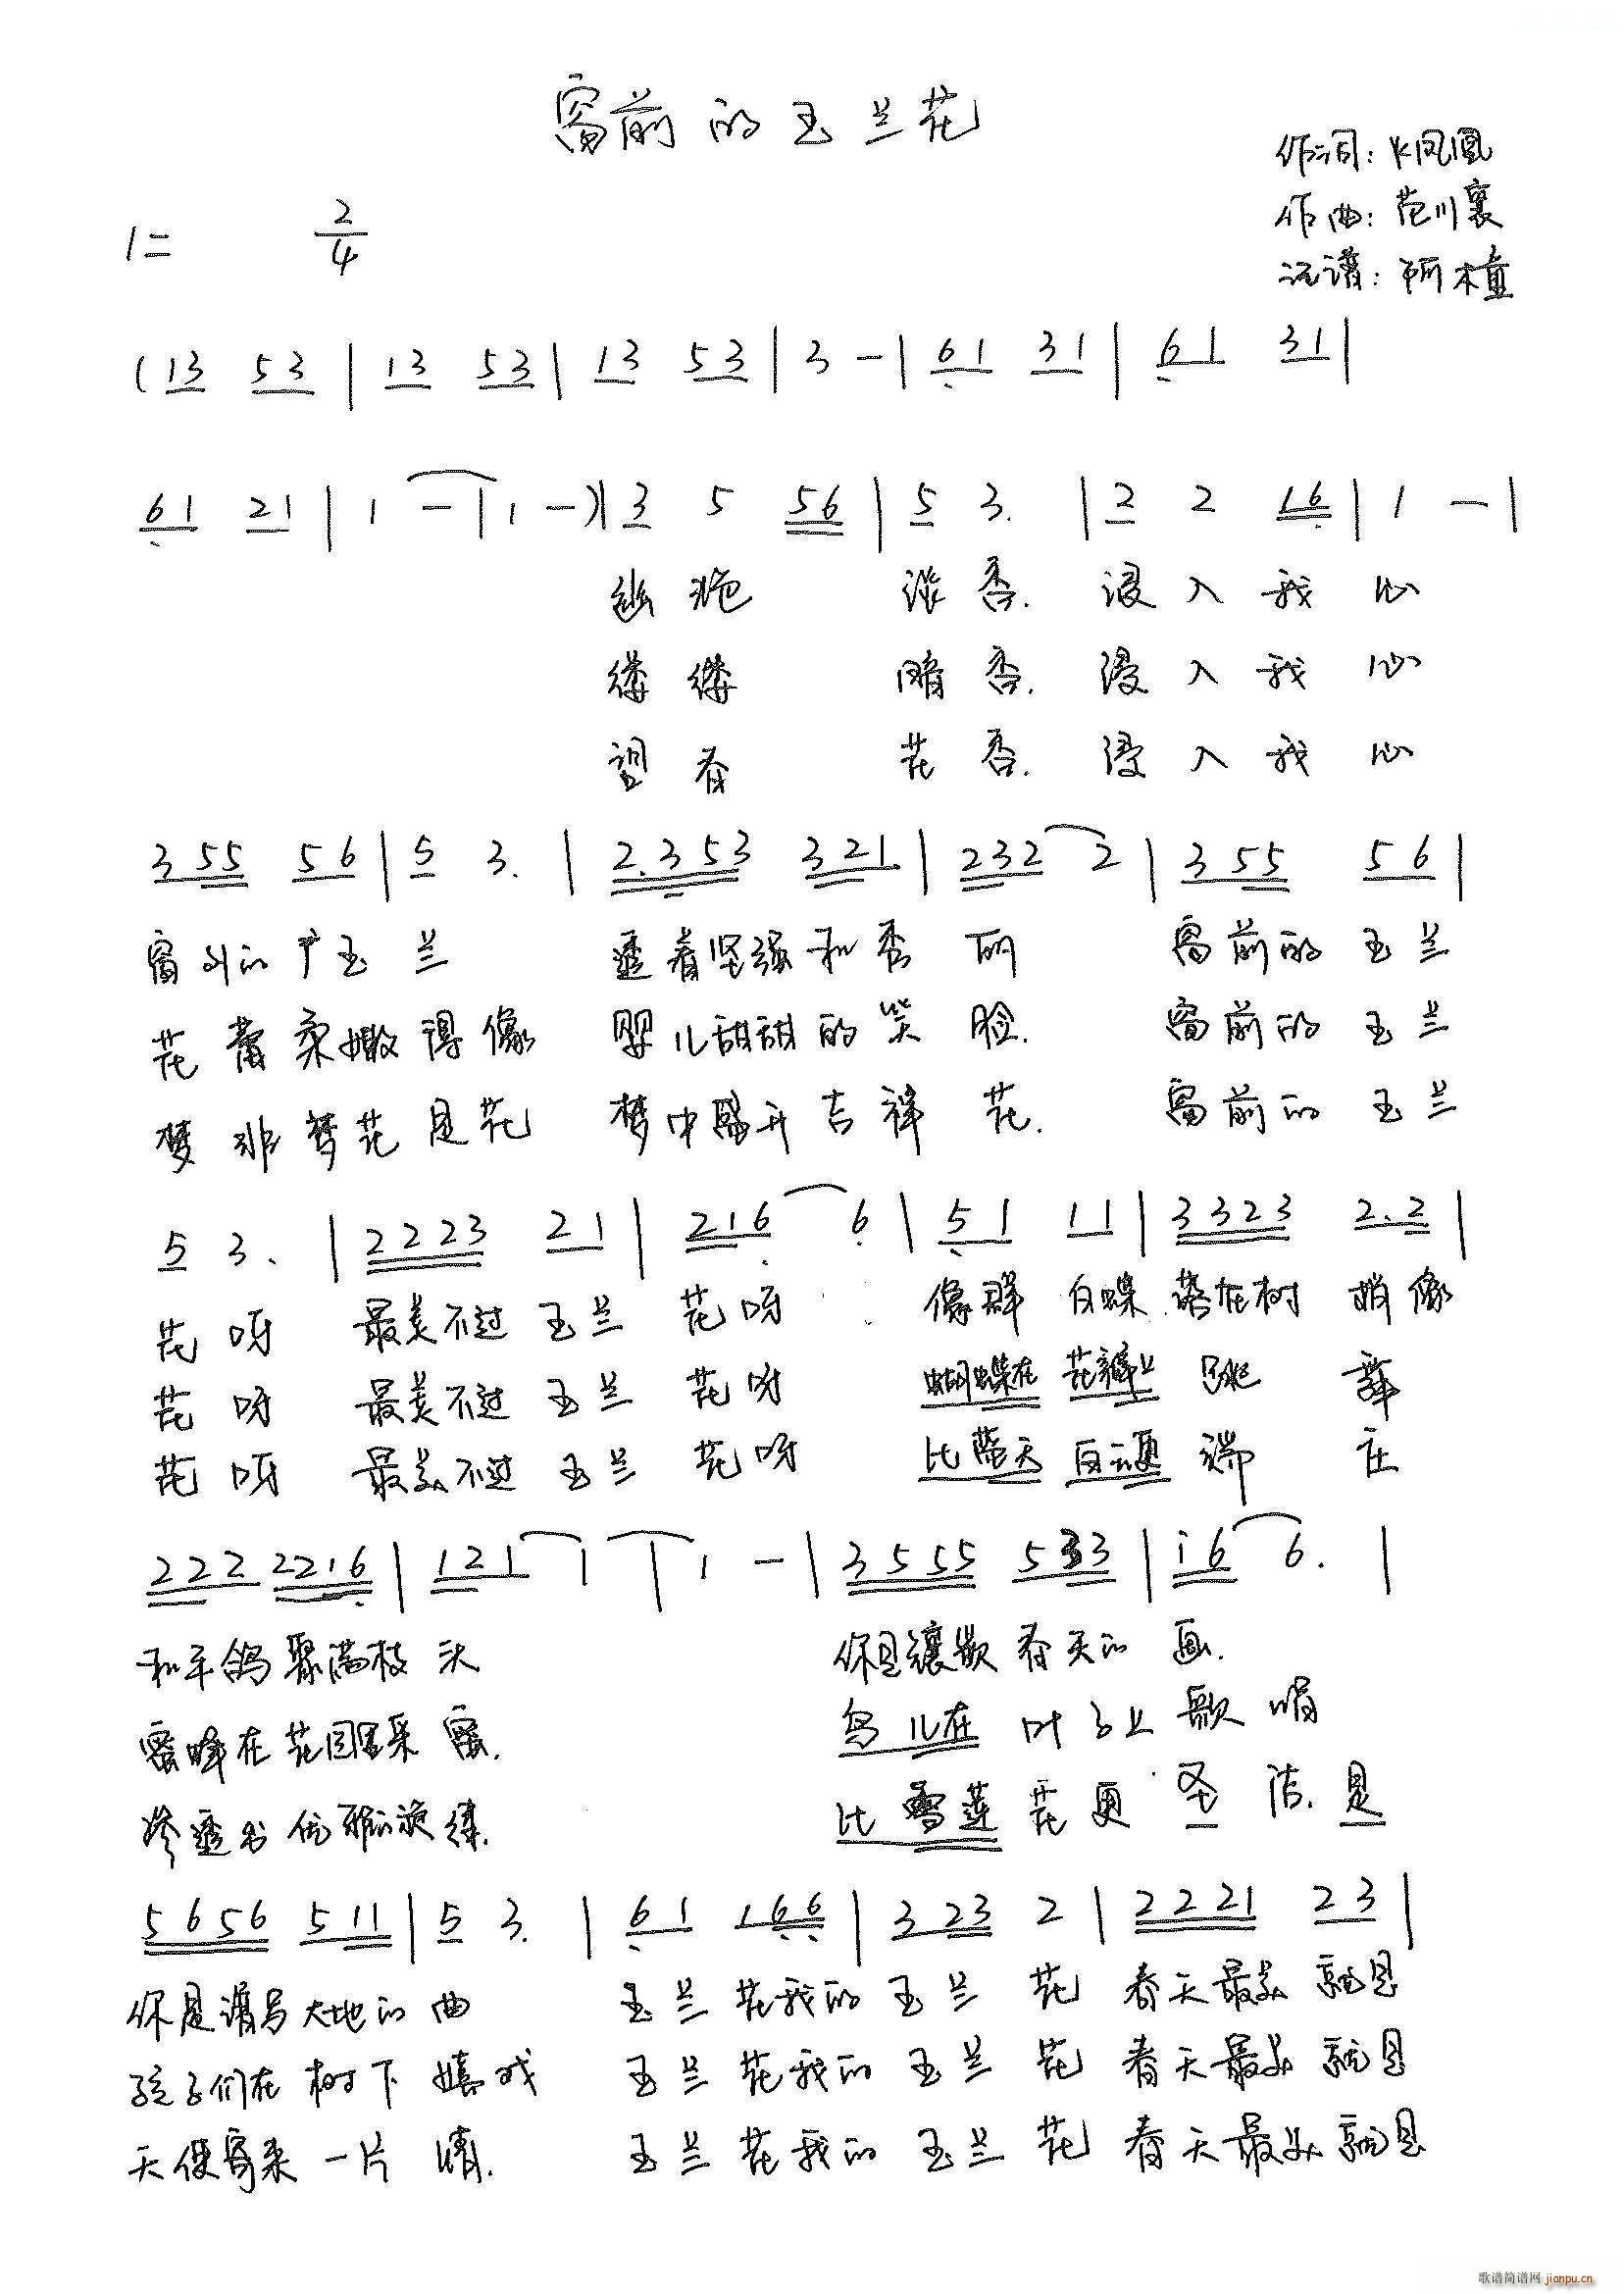 窗前的玉兰花
作词:火凤凰
作曲:范川襄
记谱:阿木童
1= 2/4
(13 53 | 13 53 | 13 53 | 3 - | 61 31 | 61 31 |
61 21 | 1 - | 1 -)| 3 5 56 | 5 3. | 2 2 16 | 1 - |
幽 淡香. 浸入我心
缕缕 暗香. 浸入我心
望春 花香. 浸入我心
355 56 | 5 3. | 2.353 321 | 232 2 | 355 56 |
窗外的 玉兰 透着坚强和秀丽 窗前的玉兰
花蕾柔嫩得像 婴儿甜甜的笑脸. 窗前的玉兰
梦非梦花是花 梦中盛开吉祥花. 窗前的玉兰
5 3. | 2223 21 | 216 6 | 51 11 | 3323 2.2 |
花呀 最美不过玉兰花呀 像群白蝶落在树梢像
花呀 最美不过玉兰花呀 蝴蝶在花瓣上跳舞
花呀 最美不过玉兰花呀 比蓝天白云更端庄
222 2216 | 121 1 | 1 - | 3555 533 | i6 6. |
和平鸽聚满枝头 你是镶嵌春天的画.
蜜蜂在花园里采蜜. 鸟儿在叶子上歌唱
渗透出优雅的旋律. 比雪莲花更圣洁.是
5656 511 | 5 3. | 61 166 | 323 2 | 2221 23 |
你是谱写大地的曲 玉兰花我的玉兰花 春天最美就是
孩子们在树下嬉戏 玉兰花我的玉兰花 春天最美就是
天使寄来一片情. 玉兰花我的玉兰花 春天最美就是
歌谱简谱网 jianpu.cn